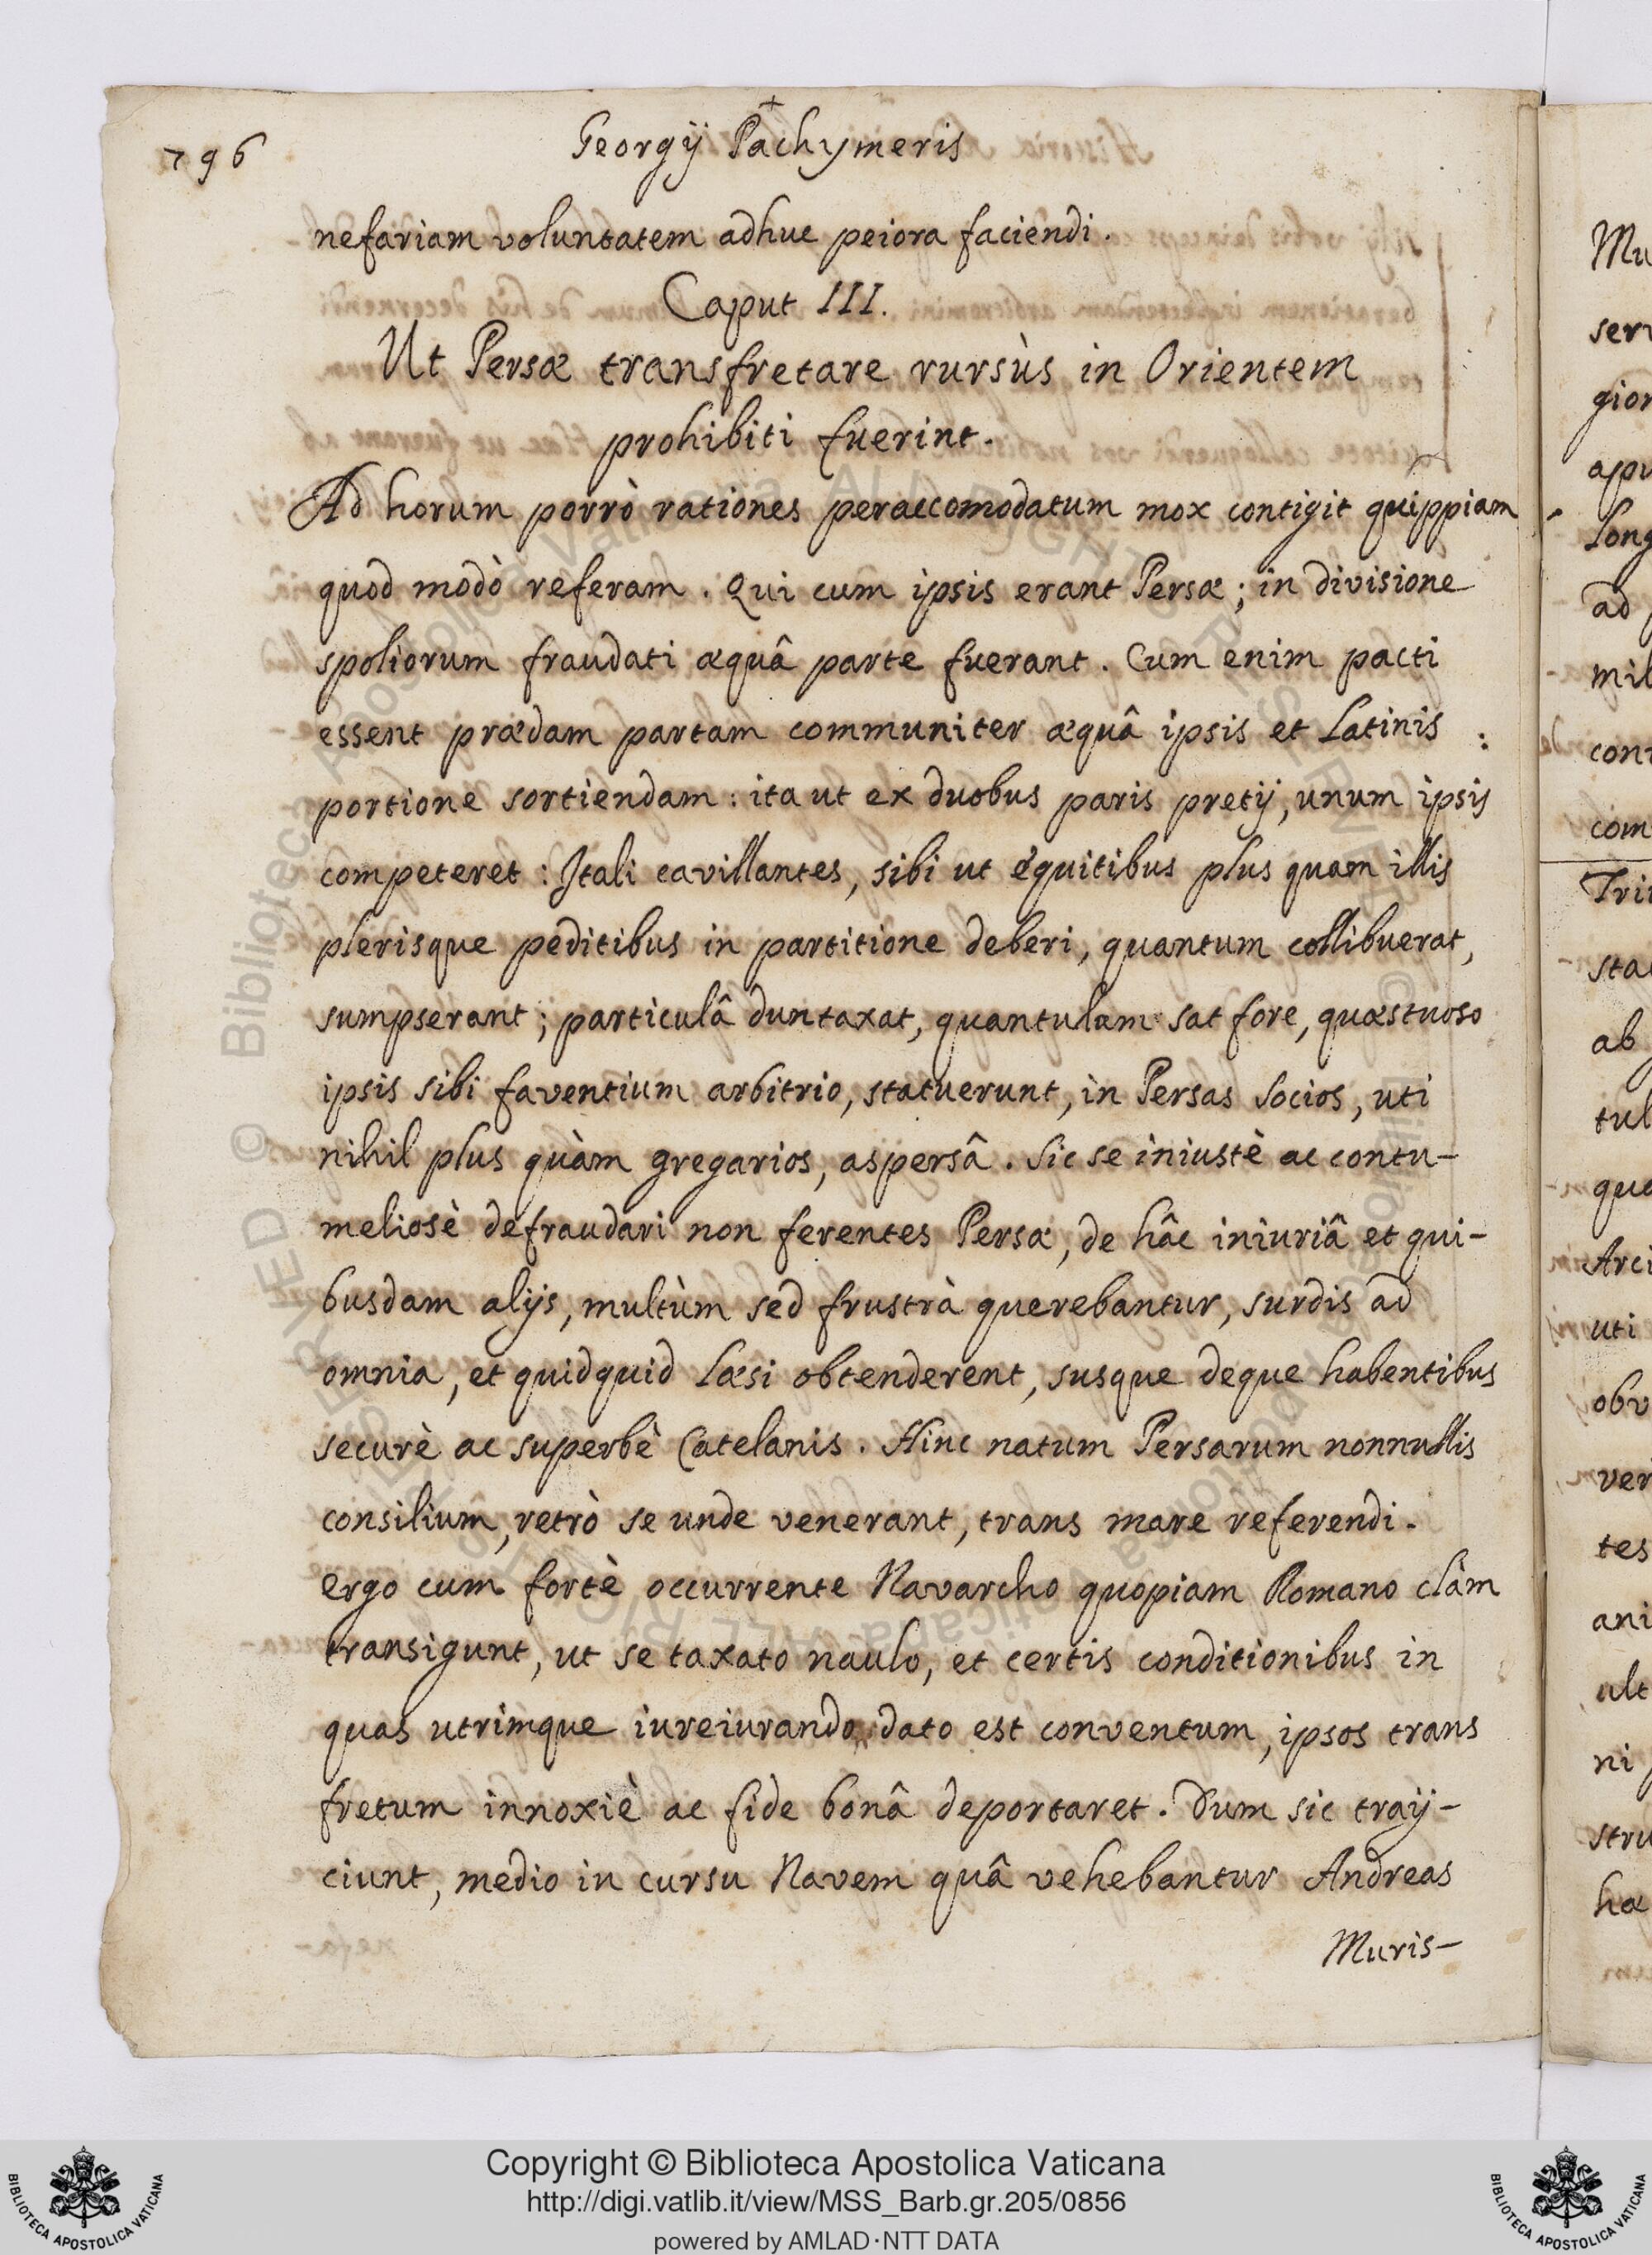 796
Georgÿ Pachymeris
nefariam voluntatem adhuc peiora faciendi.
Caput III.
Ut Persæ transfretare rursùs in Orientem
prohibiti fuerint.
Ad horum porrò rationes peraccomodatum mox contigit quippiam
quod modò referam. Qui cum ipsis erant Persæ; in divisione
spoliorum fraudati æquâ parte fuerant. Cum enim pacti
essent prædam partam communiter æquâ ipsis et Latinis
portione sortiendam: ita ut ex duobus paris pretÿ, unum ipsis
competeret: Itali cavillantes, sibi ut equitibus plus quam illis
plerisque peditibus in partitione deberi, quantum collibuerat,
sumpserant; particulâ duntaxat, quantulam sat fore, quæstuoso
ipsis sibi faventium arbitrio, statuerunt, in Persas Socios, uti
nihil plus quàm gregarios, aspersâ. Sic se iniustè ac contu-
meliosè defraudari non ferentes Persæ, de hâc iniuriâ et qui-
busdam alÿs, multùm sed frustrà querebantur, surdis ad
omnia, et quidquid Læsi obtenderent, susque deque habentibus
securè ac superbè Catelanis. Hinc natum Persarum nonnullis
consilium, retrò se unde venerant, trans mare referendi.
ergo cum fortè occurrente Navarcho quopiam Romano clàm
transigunt, ut se taxato naulo, et certis conditionibus in
quas utrimque iureiurando dato est conventum, ipsos trans
fretum innoxiè ac fide bonâ deportaret. Dum sic traÿ-
ciunt, medio in cursu Navem quâ vehebantur Andreas
Muris-
Mu
serv
gior
apu
Long
ad
mil
com
Tri
sta
ab
tul
qua
Arci
uti
obv
ver
tes
ani
alt
ni
stru
hæ
Copyright © Biblioteca Apostolica Vaticana
http://digi.vatlib.it/view/MSS_Barb.gr.205/0856
powered by AMLAD·NTT DATA
BIBLIOTECA APOSTOLICA VATICANA
BIBLIOTECA APOSTOLICA VATICANA